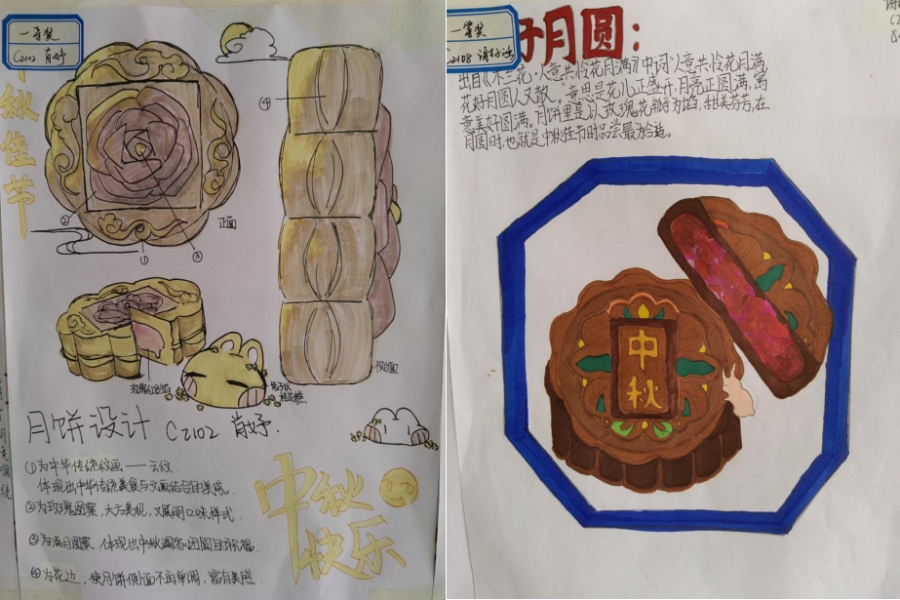 一等奖
C2102 肖妤
中秋佳节
④
②
①
③
正面
侧面
月饼设计 C2102 肖妤.
①为中华传统纹画——云纹.
体现出中华传统美食与文画结合的美感.
②为玫瑰图案,大方美观,又展明口味样式.
③为满月图案,体现出中秋阖家团圆的祝福.
④为花边,使月饼侧面不再单调,富有美感.
中秋
快乐
一等奖
C2108
好月圆:
人意共怜花月满》中词“人意共怜花月满,
花好月圆人又散.”意思是花儿正盛开,月亮正圆满,寓
意美好圆满。月饼里是以玫瑰花瓣为馅,甜美芬芳,在
月圆时,也就是中秋佳节时品尝最为合适。
中
秋